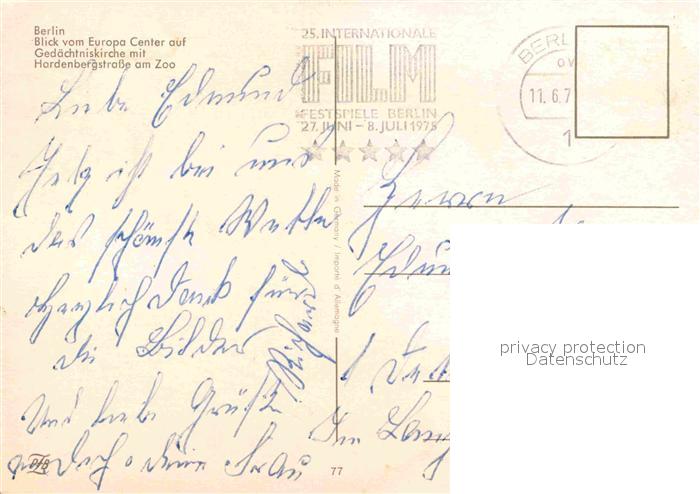 Berlin
Blick vom Europa Center auf
Gedächtniskirche mit
Hardenbergstraße am Zoo
25. INTERNATIONALE
FILM
FESTSPIELE BERLIN
27. JUNI – 8. JULI 1975
BERL
11.6.7
1
Liebe Edmund
Jetz ist bei uns
das schönste Wetter
Herzlich Dank für
die Bilder
Und liebe Grüße
Dich + deine Frau
Richard
Made in Germany / Importé d'Allemagne
Herrn
Edmun
1
77
privacy protection
Datenschutz